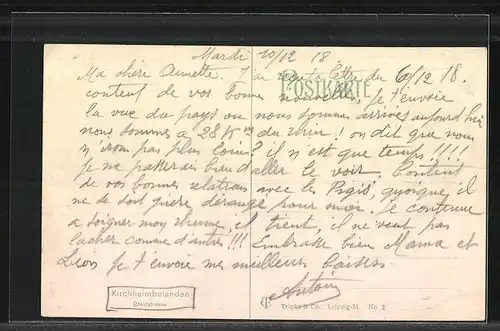 Mardi 10/12 18
POSTKARTE
Ma chère Annette. J'ai reçu ta lettre du 6/12 18.
content de vos bonnes nouvelles, je t'envoie
la vue du pays ou nous sommes arrivés aujourd'hui
nous sommes a 28 Km du rhin! on dit que nous
n'irons pas plus loin? il n'est que temps!!!!
je me passerais bien d'aller le voir. Content
de vos bonnes relations avec les quoique il
ne se soit guère dérangé pour moi. Je continue
a soigner mon rhume, il tient, il ne veut pas
lacher comme d'autres!!! Embrasse bien Mama et
Leon je t'envoie mes meilleurs baisers.
Antoine
Kirchheimbolanden
Breidstrasse
Trinks & Co., Leipzig-St. No 2